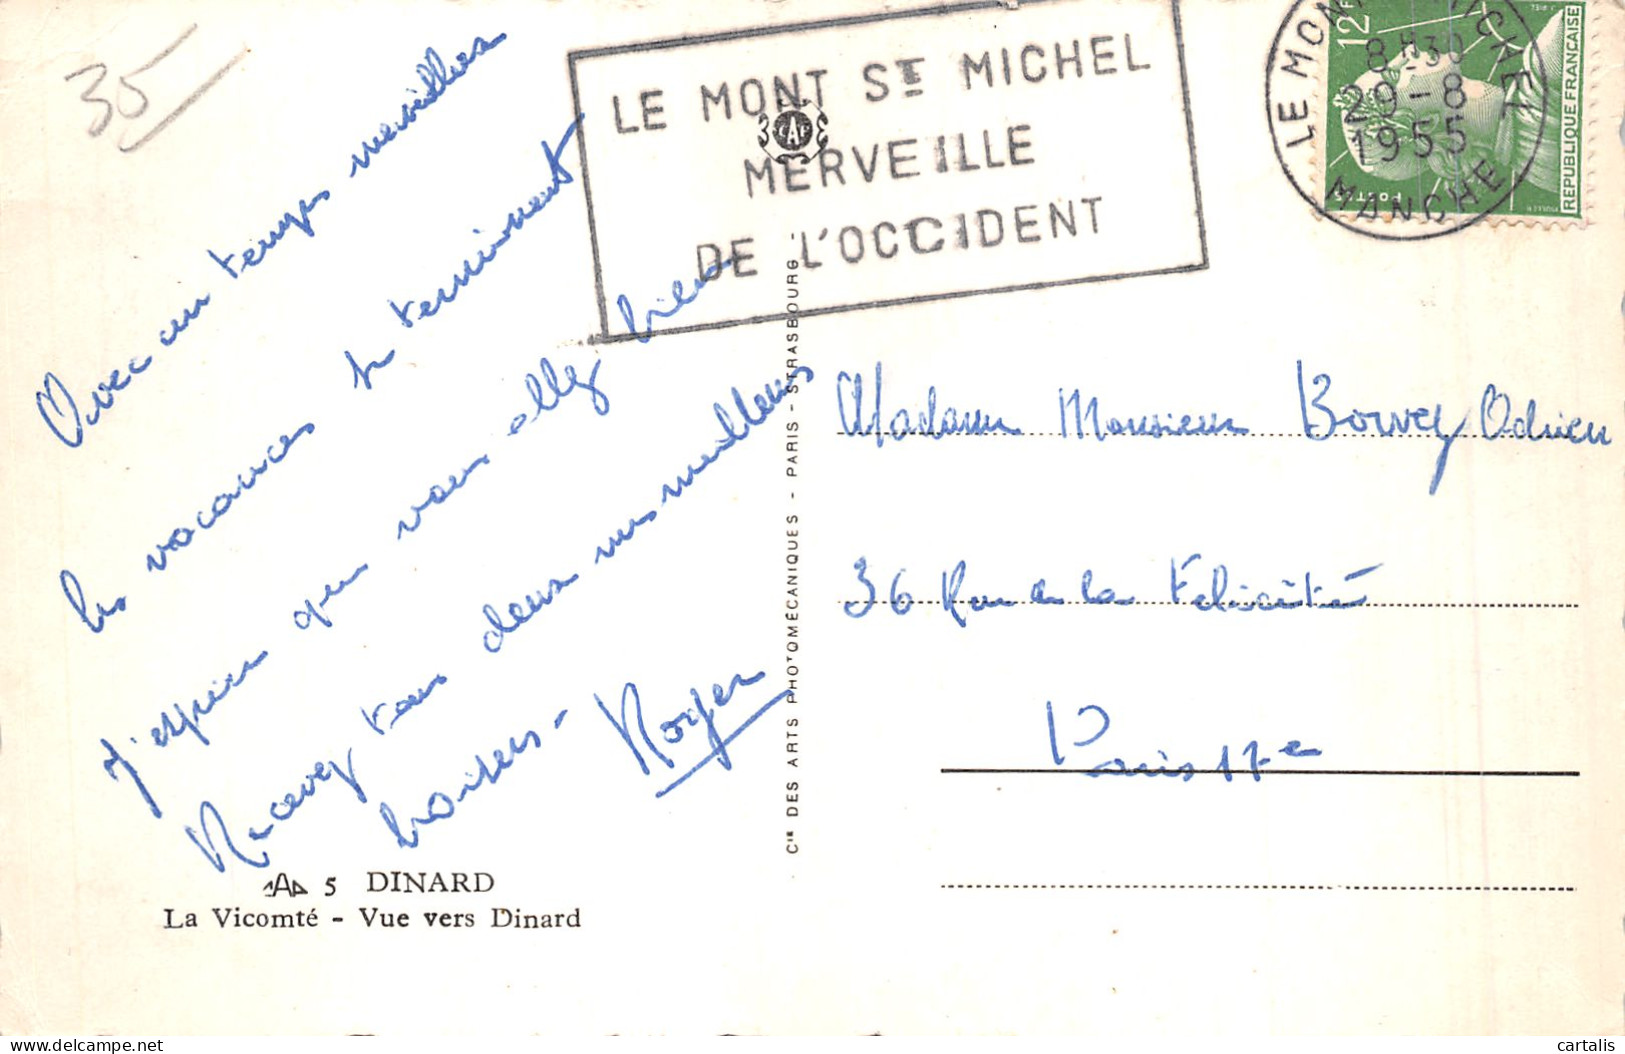 35
LE MONT STE MICHEL
MERVEILLE
DE L'OCCIDENT
LE MONT MICHEL
8H30
29-8
1955
MANCHE
12F
POSTES
REPUBLIQUE FRANÇAISE
Avec un temps merveilleux
les vacances se terminent
J'espère que vous allez bien
Recevez tous deux mes meilleurs
baisers - Roger
Madame Monsieur Bouvey Adrien
36 Rue de la Felicité
Paris 17e
CIE DES ARTS PHOTOMÉCANIQUES - PARIS - STRASBOURG
CAP
5 DINARD
La Vicomté - Vue vers Dinard
delcampe.net
cartalis